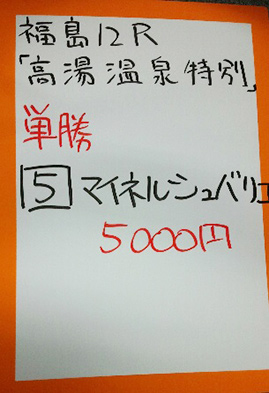 福島12R
「高湯温泉特別」
単勝
5 マイネルシュバリエ
5000円